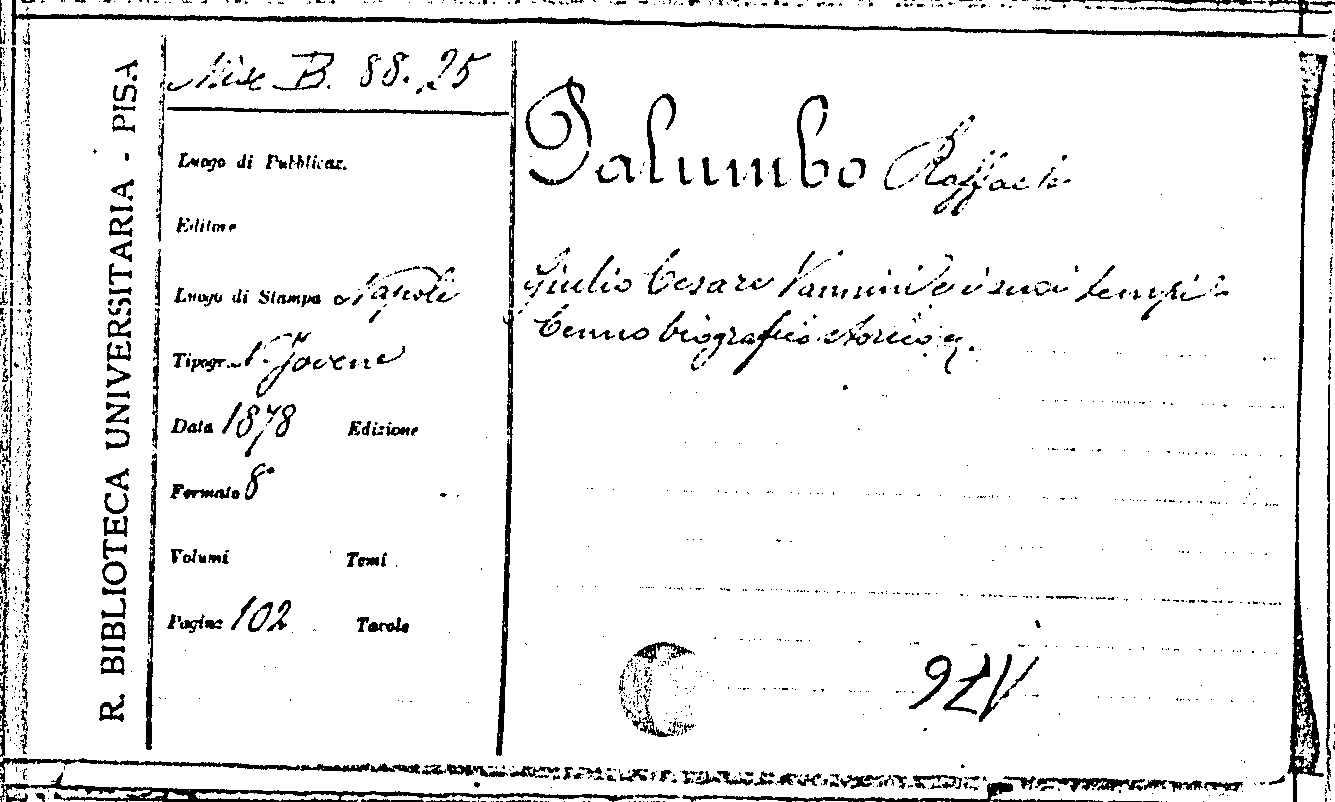 R. BIBLIOTECA UNIVERSITARIA - PISA
Misc B. 88. 25
Luogo di Pubblicaz.
Editore
Luogo di Stampa Napoli
Tipogr. N Jovene
Data 1878 Edizione
Formato 8°
Volumi Tomi
Pagine 102 Tavole
Palumbo Raffaele
Giulio Cesare Vannini e i suoi tempi
Cenno biografico storico